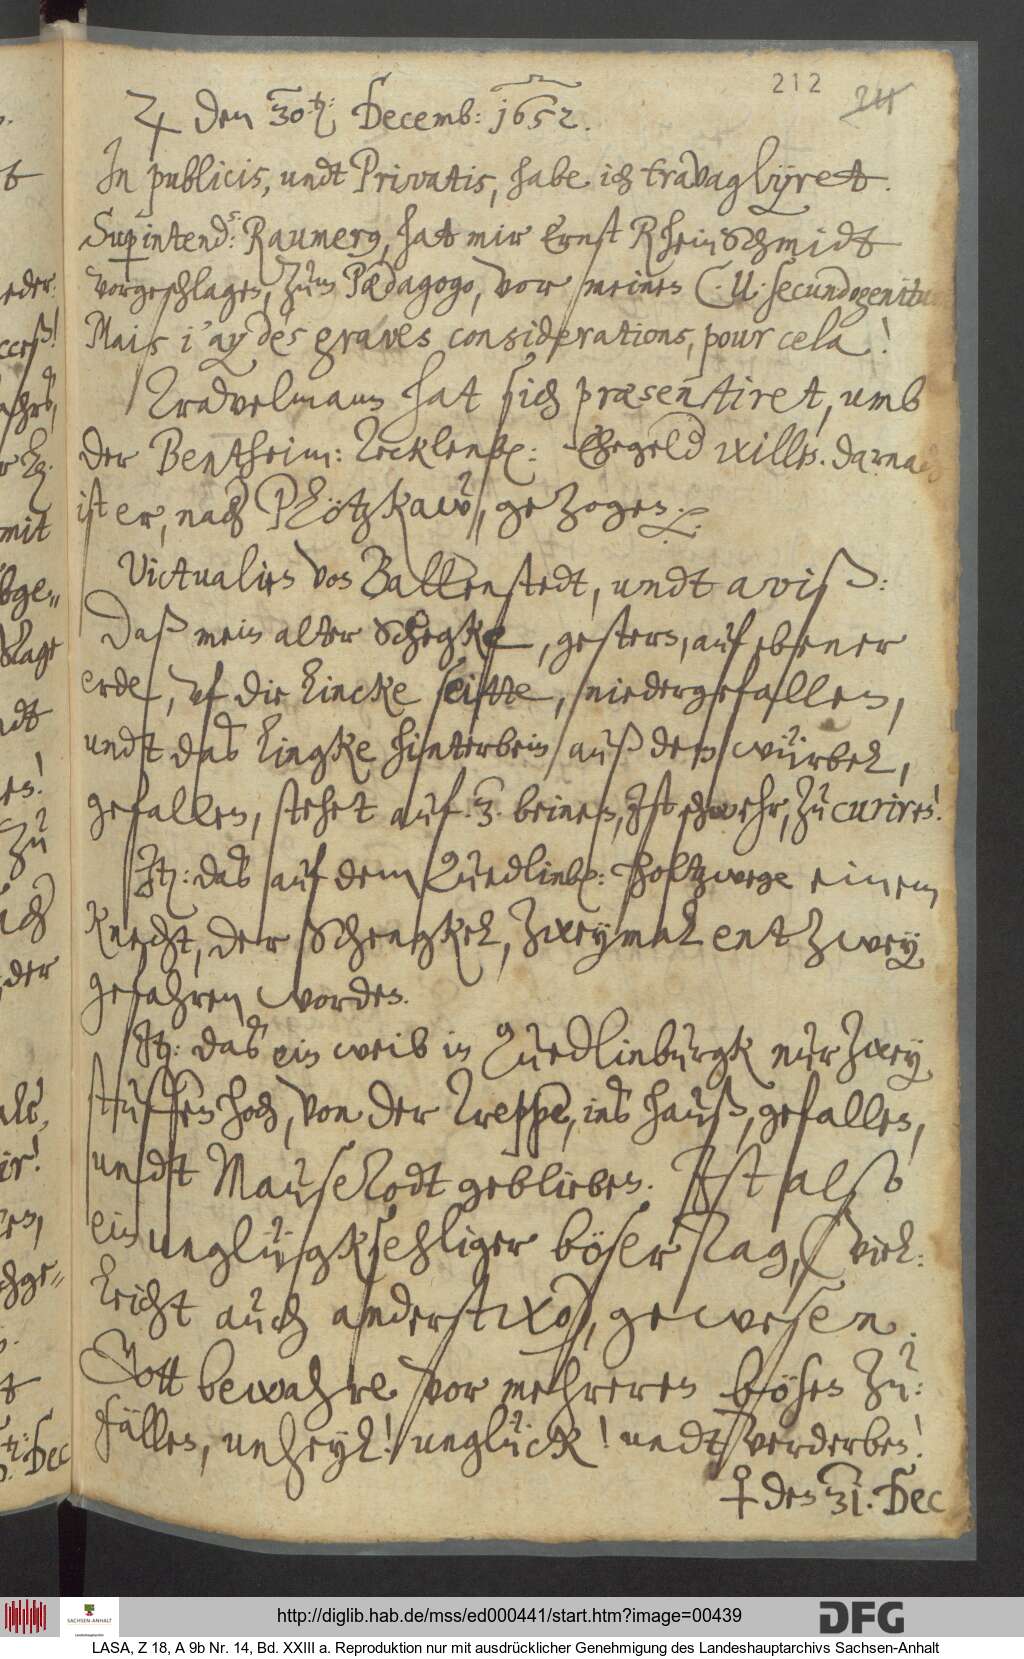 212 211
♃ den 30.ten: Decemb: 1652.
In publicis, undt Privatis, habe ich travaglÿret.
Sup intend:s Raumerg, hat mir Ernst Rheinschmidt
vorgeschlagen, zum Pædagogo, vor meinen C. U. secundogenitum
Mais i'ay des graves considerations, pour cela!
Tradvelmann hat sich præsentiret, umb
der Bentheim: Tecklenb: Ehegeld willen. darnach
ist er, nach Plötzkaw, gezogen.
Victualien von Ballenstedt, undt aviß:
Daß mein alter Schegke, gestern, auf ebener
erde, uf die lincke seitte, niedergefallen,
undt das lingke hinterbein auß dem würbel,
gefallen, stehet auf .3. beinen, Ist schwehr, zu curiren!
It: das auf dem Quedlinb: Holtzwege einem
Knecht, der Schengkel, zweymal entzwey
gefahren worden.
It: das ein weib in Quedlinburgk nur zwey
stuffen hoch, von der Treppe, ins hauß, gefallen,
undt Mausetodt geblieben. Ist also
ein unglügksehliger böser Tag, (viel:
leicht auch anderstwo) gewesen.
Gott bewahre vor mehreren bösen Zu:
fällen, unheyl! unglück! undt verderben!
♀ den 31. Dec
http://diglib.hab.de/mss/ed000441/start.htm?image=00439
SACHSEN-ANHALT
DFG
LASA, Z 18, A 9b Nr. 14, Bd. XXIII a. Reproduktion nur mit ausdrücklicher Genehmigung des Landeshauptarchivs Sachsen-Anhalt